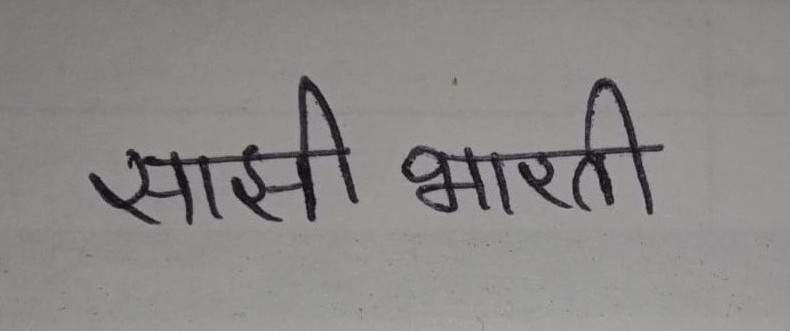 सासी भारती